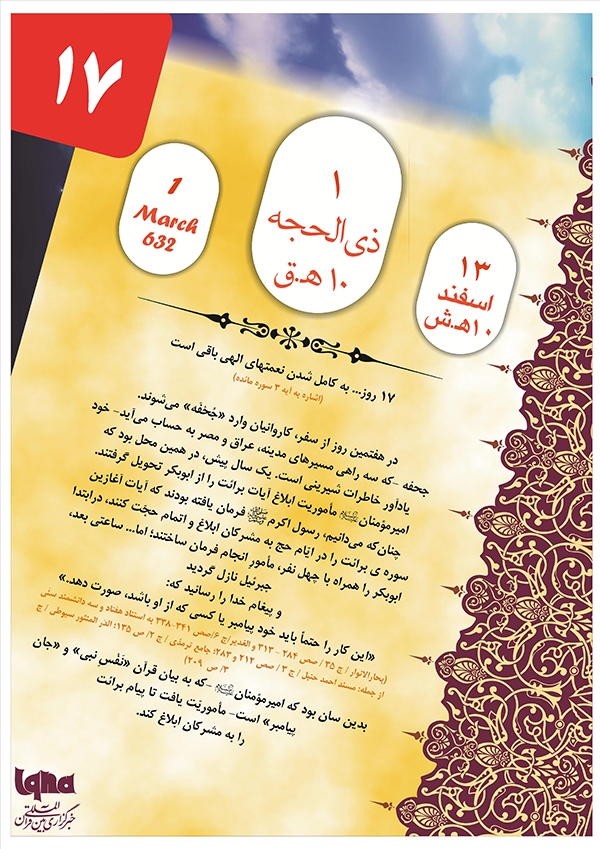 ۱۷
۱
ذی الحجه
۱۰ هـ.ق
1
March
632
۱۳
اسفند
۱۰ هـ.ش
۱۷ روز... به کامل شدن نعمتهای الهی باقی است
(اشاره به آیه ۳ سوره مائده)
در هفتمین روز از سفر، کاروانیان وارد «جُحْفَه» می‌شوند.
جحفه -که سه راهی مسیرهای مدینه، عراق و مصر به حساب می‌آید- خود
یادآور خاطرات شیرینی است. یک سال پیش، در همین محل بود که
امیرمؤمنان مأموریت ابلاغ آیات برائت را از ابوبکر تحویل گرفتند.
چنان‌که می‌دانیم، رسول اکرم ﷺ فرمان یافته بودند که آیات آغازین
سوره ی برائت را در ایّام حج به مشرکان ابلاغ و اتمام حجّت کنند، درابتدا
ابوبکر را همراه با چهل نفر، مأمور انجام فرمان ساختند؛ اما... ساعتی بعد،
جبرئیل نازل گردید
و پیغام خدا را رسانید که:
«این کار را حتماً باید خود پیامبر یا کسی که از او باشد، صورت دهد.»
(بحارالانوار / ج ۳۵ / صص ۲۸۴ - ۳۱۳ و الغدیر/ج ۶/صص ۳۴۱-۳۳۸ به استناد هفتاد و سه دانشمند سنّی
از جمله: مسند احمد حنبل / ج ۳ / صص ۲۱۲ و ۲۸۳؛ جامع ترمذی / ج ۲/ ص ۱۳۵؛ الدر المنثور سیوطی / ج
۳/ ص ۲۰۹)
بدین سان بود که امیرمؤمنان -که به بیان قرآن «نَفْس نبی» و «جان
پیامبر» است- مأموریّت یافت تا پیام برائت
را به مشرکان ابلاغ کند.
iqna
خبرگزاری بین المللی قرآن